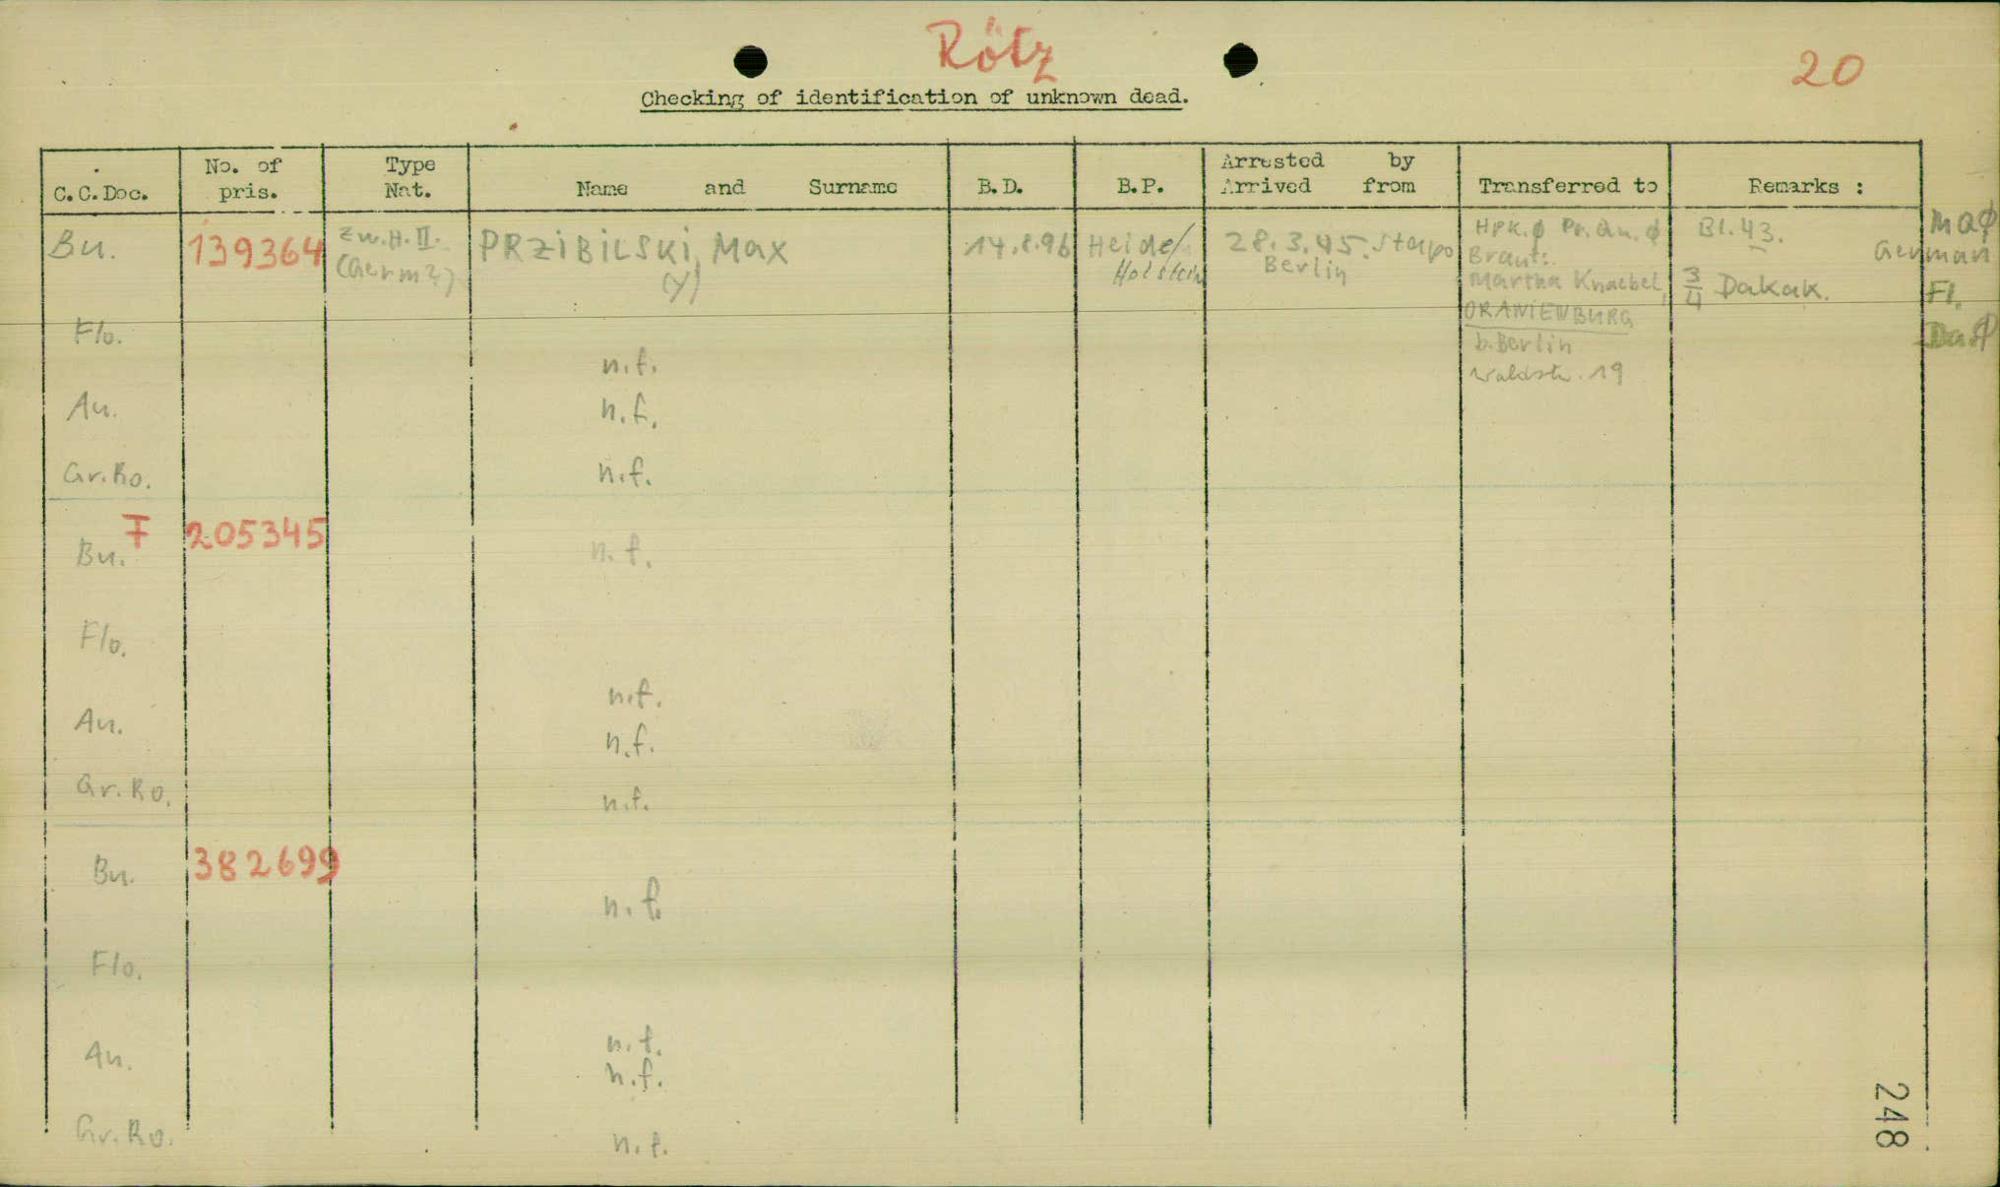 Rötz
20
Checking of identification of unknown dead.
C.C.Doc. No. of pris. Type Nat. Name and Surname B.D. B.P. Arrested by Arrived from Transferred to Remarks :
Bu. 139364 Zw.H.II. (Germ?) PRZIBILSKI, Max (Y) 14.8.96 Heide/ Holstein 28.3.45. Stapo Berlin
HPK.ϕ Pr.Qu.ϕ
Braut:
Martha Knaebel,
ORANIENBURG
b.Berlin
Waldstr. 19
Bl.43.
3/4 Dakak.
Maϕ
German
Fl.
Daϕ
Flo. n.f.
Au. n.f.
Gr.Ro. n.f.
Bu. F 205345 n.f.
Flo. n.f.
Au. n.f.
Gr.Ro. n.f.
Bu. 382699 n.f.
Flo. n.f.
Au. n.f.
Gr.Ro. n.f.
248